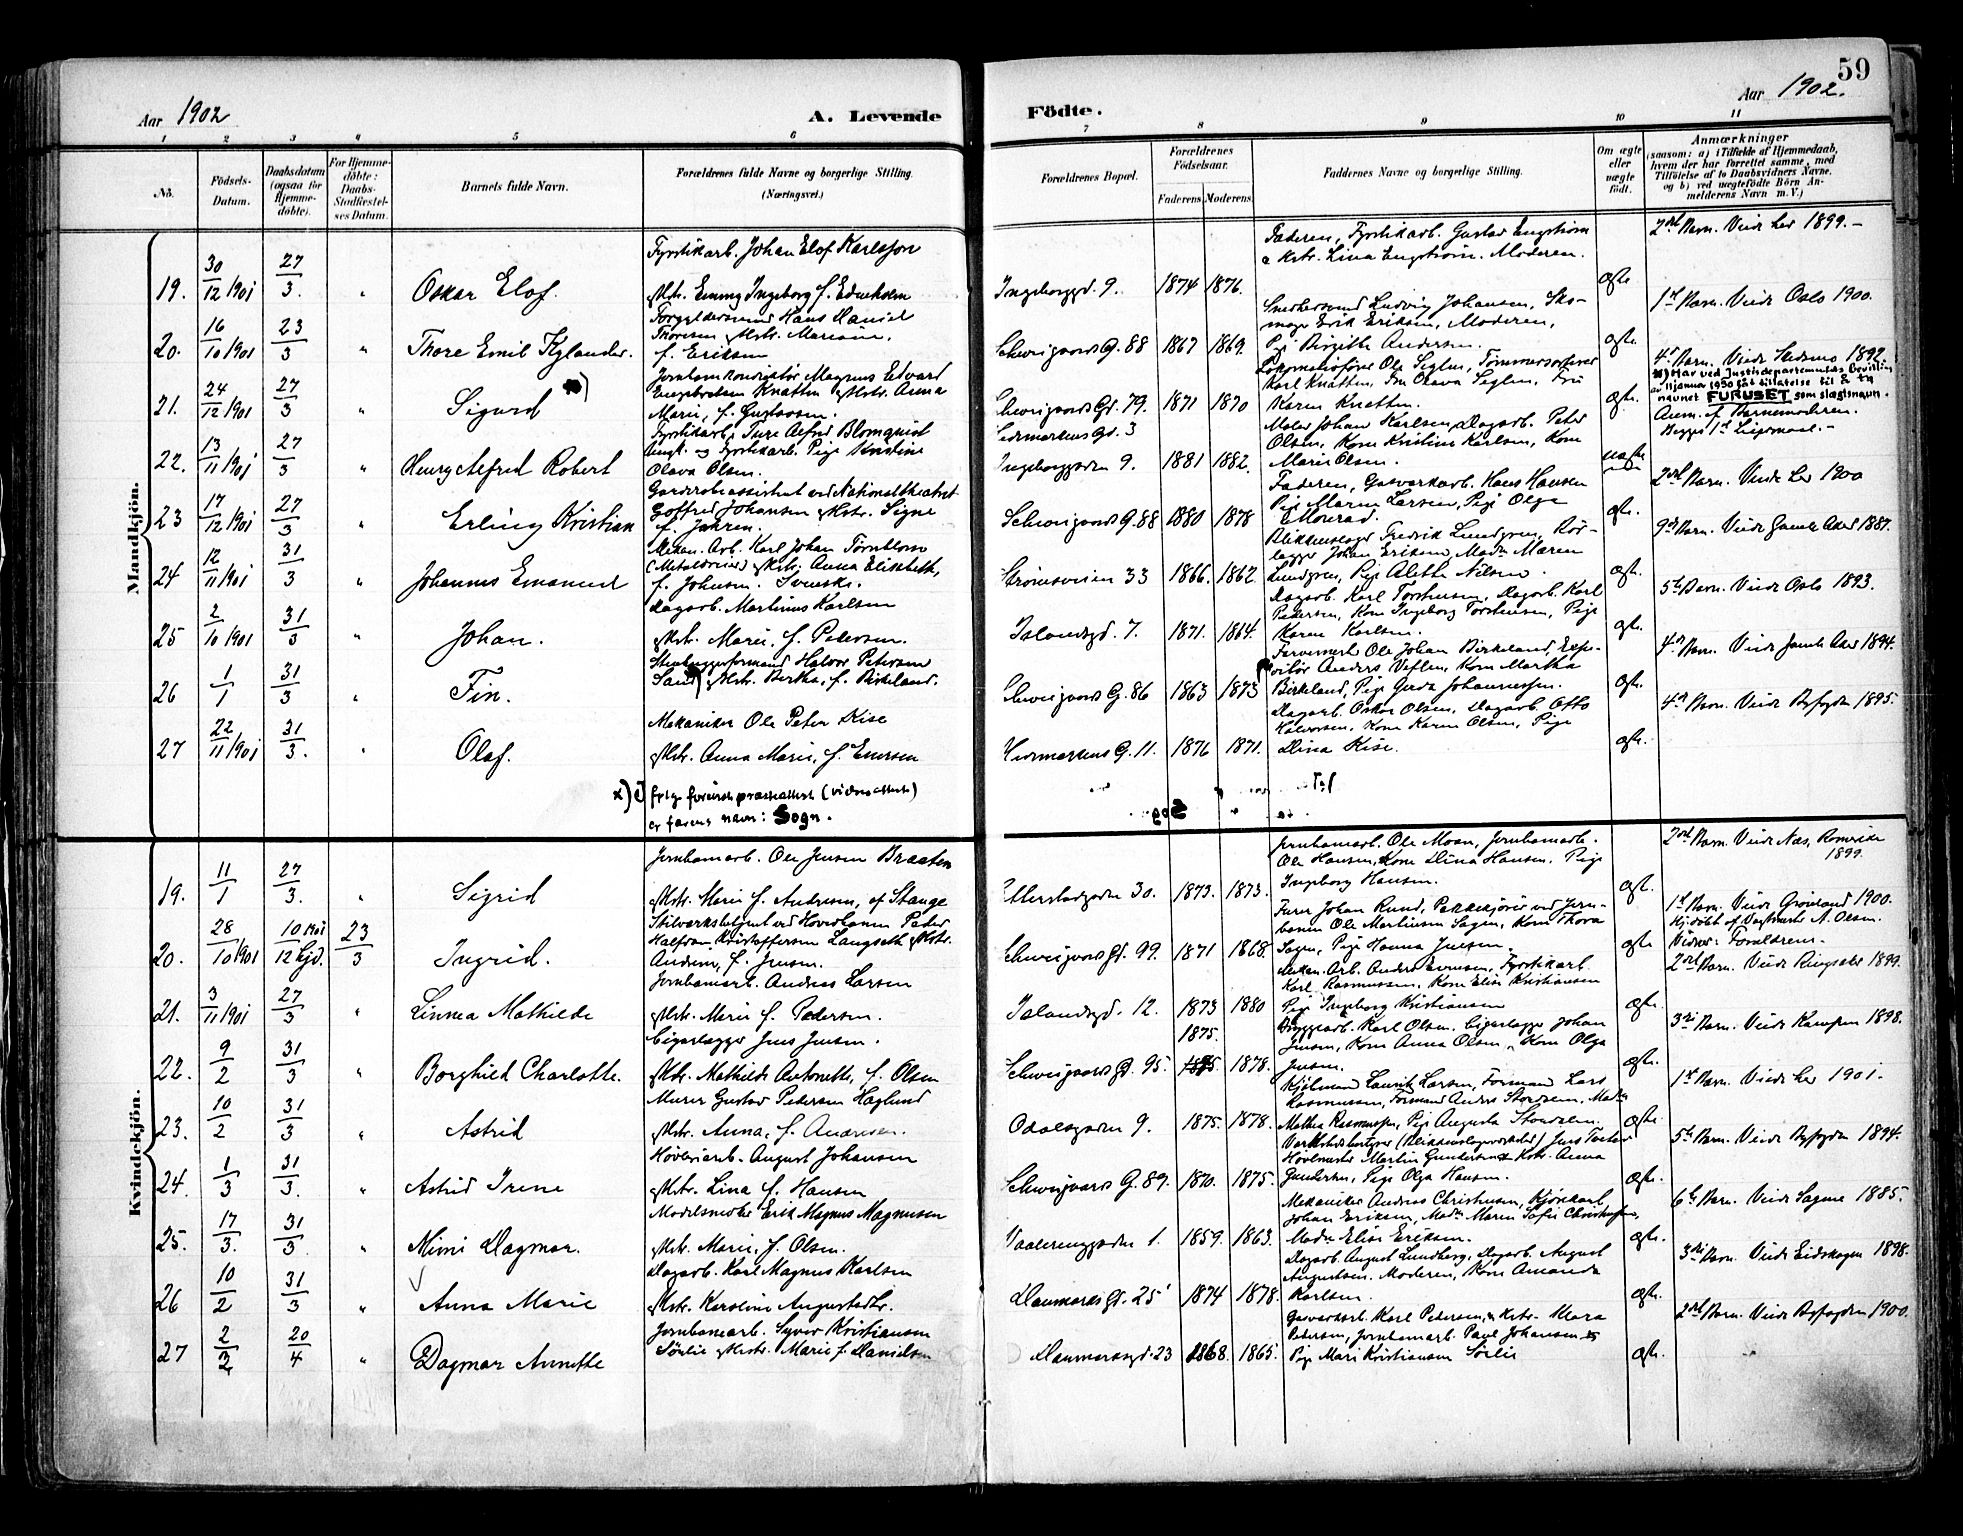 59
Aar 1902
A. Levende
Födte.
Aar 1902.
1 2 3 4 5 6 7 8 9 10 11
No.
Födsels-Datum.
Daabsdatum (ogsaa för Hjemme-döbte).
For Hjemme-döbte: Daabs-Stadfæstel-ses Datum.
Barnets fulde Navn.
Forældrenes fulde Navne og borgerlige Stilling. (Næringsvei.)
Forældrenes Bopæl.
Forældrenes Födselsaar.
Faderens Moderens
Faddernes Navne og borgerlige Stilling.
Om ægte eller uægte födt.
Anmærkninger
(saasom: a) i Tilfælde af Hjemmedaab, hvem der har forrettet samme, med Tilföielse af to Daabsvidners Navne, og b) ved uægtefödte Börn An-melderens Navn m.V.)
Mandkjön.
19. 30/12 1901 27/3. " Oskar Elof. Fyrstikarb. Johan Elof Karlsson
Hstr. Emmy Ingeborg f. Ederholm
Ingeborggd. 9. 1874 1876.
Faderen, Fyrstikarb. Gustav Engström
& Hstr. Lina Engström. Moderen.
ægte
2det Barn. Viede her 1899.-
20. 16/10 1901 23/3 " Thore Emil Kylander. Forgyldersvend Hans Daniel
Thoresen & Hstr. Mariane,
f. Eriksen
Schweigaards G. 88 1867 1869.
Snedkersvend Ludvig Johansen, Sko-
mager Erik Eriksen, Moderen,
Pige Birgitte Andersen.
ægte.
1ste Barn. Viede Oslo 1900.
21. 24/12 1901 27/3 " Sigurd Jernbanekonduktör Magnus Edvard
Engebretsen Knatten & Hstr. Anna
Marie, f. Gustavsen.
Schweigaards Gd. 79. 1871 1870
Lokomotivförer Ole Seglen, Tömmersorterer
Karl Knatten, Fru Olava Seglen, Fru
Karen Knatten.
ægte.
4de Barn. Viede Hedrum 1892.
x) Har ved Justisdepartementets Bevilling
av 11 januar 1930 fåt tillatelse til å ta
navnet FURUSET som slegtsnavn.
22. 13/11 1901 27/3 " Henry Alfred Robert Fyrstikarb. Ture Alfred Blomquist
Ungk. og Fyrstikarb. Pige Kristine
Olava Olsen.
Hedmarkens Gd. 3
Ingeborggaden 9. 1881 1882.
Maler Johan Karlsen, Dagarb. Peter
Olsen, Kone Kristine Karlsen, Kone
Marie Olsen.
uægte
Anm. af Barnemoderen.
Begges 1ste Leiermaal.-
23 17/12 1901 27/3 " Erling Kristian Garderobeassistent ved Nationaltheatret
Gotfred Johansen & Hstr. Signe
f. Jahren.
Schweigaards G. 88 1880 1878
Faderen, Gasværkarb. Hans Hansen
Pige Maren Larsen, Pige Olga
Monrad.
ægte.
2det Barn. Viede her 1900
24 12/11 1901 31/3 " Johannes Emanuel Mekan. Arb. Karl Johan Törnblom
(Metaldreier) & Hstr. Anna Elisabeth,
f. Johnsen. Svenske.
Strömsveien 33 1866. 1862.
Blikkenslager Fredrik Lundgren, Rör-
lægger Johan Eriksen, Madm Maren
Lundgren, Pige Alette Nilsen.
ægte.
9de Barn. Viede Gamle Aker 1887.
25 2/10 1901 31/3 " Johan. Dagarb. Martinus Karlsen
Hstr. Marie, f. Petersen.
Islandsgd. 7. 1871. 1864.
Dagarb. Karl Torstensen, Dagarb. Karl
Pedersen, Kone Ingeborg Torstensen, Pige
Karen Karlsen.
ægte.
5te Barn. Viede Oslo 1893.
26 1/1 31/3 " Fin. Stenhuggerformand Halvor Petersen
Sand x) & Hstr. Bertha, f. Birkeland.
Schweigaards G. 86 1863 1873
Farvermester Ole Johan Birkeland, Expe-
ditör Anders Veflen, Kone Martha
Birkeland, Pige Gerda Johannessen.
ægte.
4de Barn. Viede Gamle Aker 1894.
27 22/11 1901 31/3. " Olaf. Mekaniker Ole Peter Kise
Hstr. Anna Marie, f. Enersen
Hedmarkens G. 11. 1876 1871.
Dagarb. Oskar Olsen, Dagarb. Otto
Halvorsen, Kone Karen Olsen, Pige
Dina Kise.
ægte.
4de Barn. Viede Byfogden 1895.
x) I følge forevist presteattest (vidneattest)
er farens navn: Sogn.
Kvindekjön.
19. 11/1 27/3. " Sigrid Jernbanearb. Ole Jensen Braaten
Hstr. Marie f. Andersen, af Stange
Etterstadgaden 30. 1873. 1873.
Jernbanearb. Ole Moen, Jernbanearb.
Ole Hansen, Kone Dina Hansen. Pige
Ingeborg Hansen.
ægte.
2det Barn. Viede Næs, Romerike
1899.
20. 28/10 1901 10/12 1901 hjd. 23/3 Ingrid. Stilværksbetjent ved Hovedbanen Peder
Halfdan Kristoffersen Langseth & Hstr.
Andrea, f. Jensen.
Schweigaards Gd. 99. 1871 1868.
Furer Johan Rund, Pakkekjörer ved Jern-
banen Ole Martinsen Sagen, Kone Thora
Sagen, Pige Hanna Jensen.
ægte
1ste Barn. Viede Grönland 1900.
Hjdöbt af Vagtmester A. Olsen.
Vidner: Forældrene.
21. 3/11 1901 27/3 " Linnea Mathilde Jernbanearb. Andreas Larsen
Hstr. Marie f. Pedersen.
Islandsgd. 12. 1873 1880
Mekan. Arb. Anders Evensen, Fyrstikarb.
Karl Rasmussen, Kone Elise Kristiansen
Pige Ingeborg Kristiansen
ægte.
2det Barn. Viede Ringsaker 1899.
22. 9/2 31/3 " Borghild Charlotte. Cigarlægger Jens Jensen.
Hstr. Mathilde Antonette, f. Olsen
Schweigaards G. 95. 1875. 1878.
Bryggearb. Karl Olsen, Cigarlægger Johan
Jensen, Kone Anna Olsen, Kone Olga
Jensen.
ægte.
3die Barn. Viede Kampen 1898.
23. 10/2 31/3 " Astrid Murer Gustav Pedersen Haglund
Hstr. Anna, f. Andersen.
Odalsgaden 9. 1875. 1878.
Kjölmand Laurits Larsen, Formand Lars
Rasmussen, Formand Anders Stordalen, Madm
Mathea Rasmussen, Pige Augusta Stordalen.
ægte.
1ste Barn. Viede her 1901.
24. 1/3 31/3. " Astrid Irene Höveriarb. August Johansen
Hstr. Lina f. Hansen
Schweigaards G. 89. 1870. 1875.
Hövlemester Martin Gundersen & Hstr. Anna
Gundersen, Pige Olga Hansen.
ægte.
5te Barn. Viede Byfogden 1894.
25. 17/3. 31/3 " Mimi Dagmar. Modelsnedker Erik Magnus Magnusen
Hstr. Marie, f. Olsen.
Vaalerenggaden 1. 1859. 1863.
Mekaniker Andreas Christensen, Kjörekarl
Johan Eriksen, Madm Maren Sofie Christensen,
Madm Elise Eriksen.
ægte.
6te Barn. Viede Sagene 1885.
26 10/2 31/3 " Anna Marie Dagarb. Karl Magnus Karlsen
Hstr. Karoline Augustadtr.
Danmarks Gd. 25 1874 1878.
Dagarb. August Lundberg, Dagarb. August
Augustsen. Moderen, Kone Amanda
Karlsen.
ægte.
3die Barn. Viede Eidskogen 1898.
27 2/3 20/4 " Dagmar Annette Jernbanearb. Syver Kristiansen
Sörlie & Hstr. Marie f. Danielsen
Danmarksgd. 23 1868. 1865.
Gasværksarb. Karl Pedersen, & Hstr. Mara
Pedersen, Jernbanearb. Paul Johansen &
Pige Mari Kristiansen Sörlie
ægte.
2det Barn. Viede Byfogden 1900.